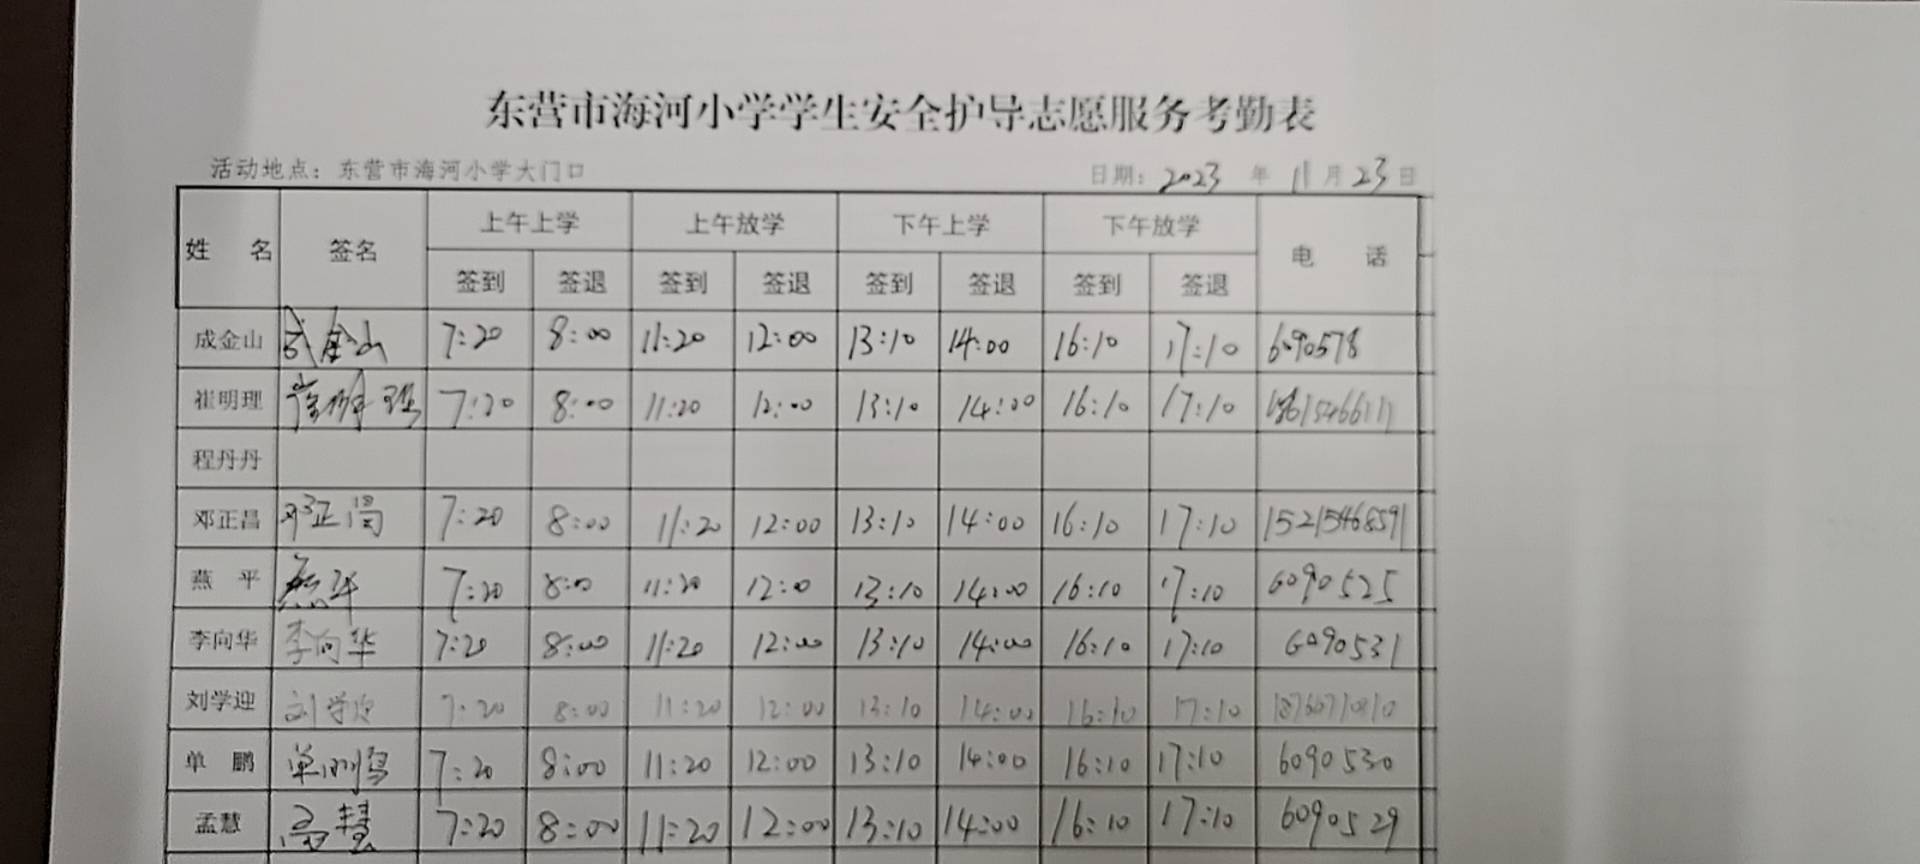 东营市海河小学学生安全护导志愿服务考勤表
活动地点：东营市海河小学大门口 日期：2023 年 11 月 23 日
姓 名 签名 上午上学 上午放学 下午上学 下午放学 电 话
签到 签退 签到 签退 签到 签退 签到 签退
成金山 成金山 7:20 8:00 11:20 12:00 13:10 14:00 16:10 17:10 6090578
崔明理 崔明理 7:20 8:00 11:20 12:00 13:10 14:00 16:10 17:10
程丹丹
邓正昌 邓正昌 7:20 8:00 11:20 12:00 13:10 14:00 16:10 17:10 15215468591
燕 平 燕平 7:20 8:00 11:20 12:00 13:10 14:00 16:10 17:10 6090525
李向华 李向华 7:20 8:00 11:20 12:00 13:10 14:00 16:10 17:10 6090531
刘学迎 刘学迎 7:20 8:00 11:20 12:00 13:10 14:00 16:10 17:10
单 鹏 单鹏 7:20 8:00 11:20 12:00 13:10 14:00 16:10 17:10 6090530
孟慧 孟慧 7:20 8:00 11:20 12:00 13:10 14:00 16:10 17:10 6090529